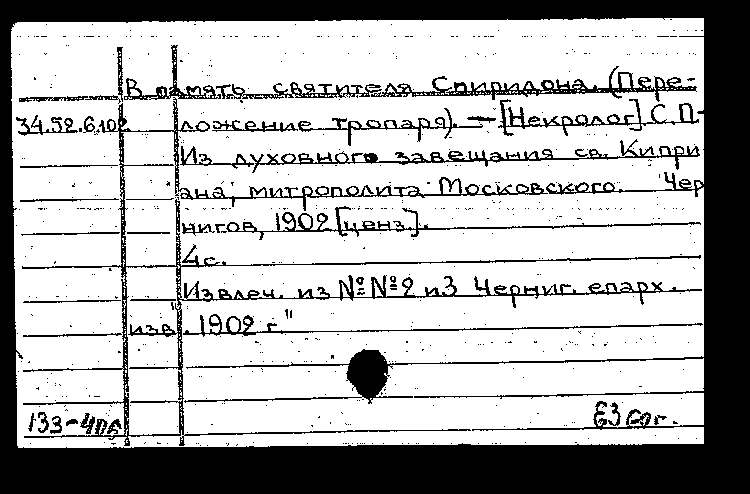 В память святителя Спиридона. (Пере-
34.52.6.102 ложение тропаря). — [Некролог] С.П.-
Из духовного завещания св. Кипри
ана, митрополита Московского. Чер
нигов, 1902 [ценз.].
4с.
Извлеч. из №№2 и3 Черниг. епарх.
изв". 1902 г."
133-406